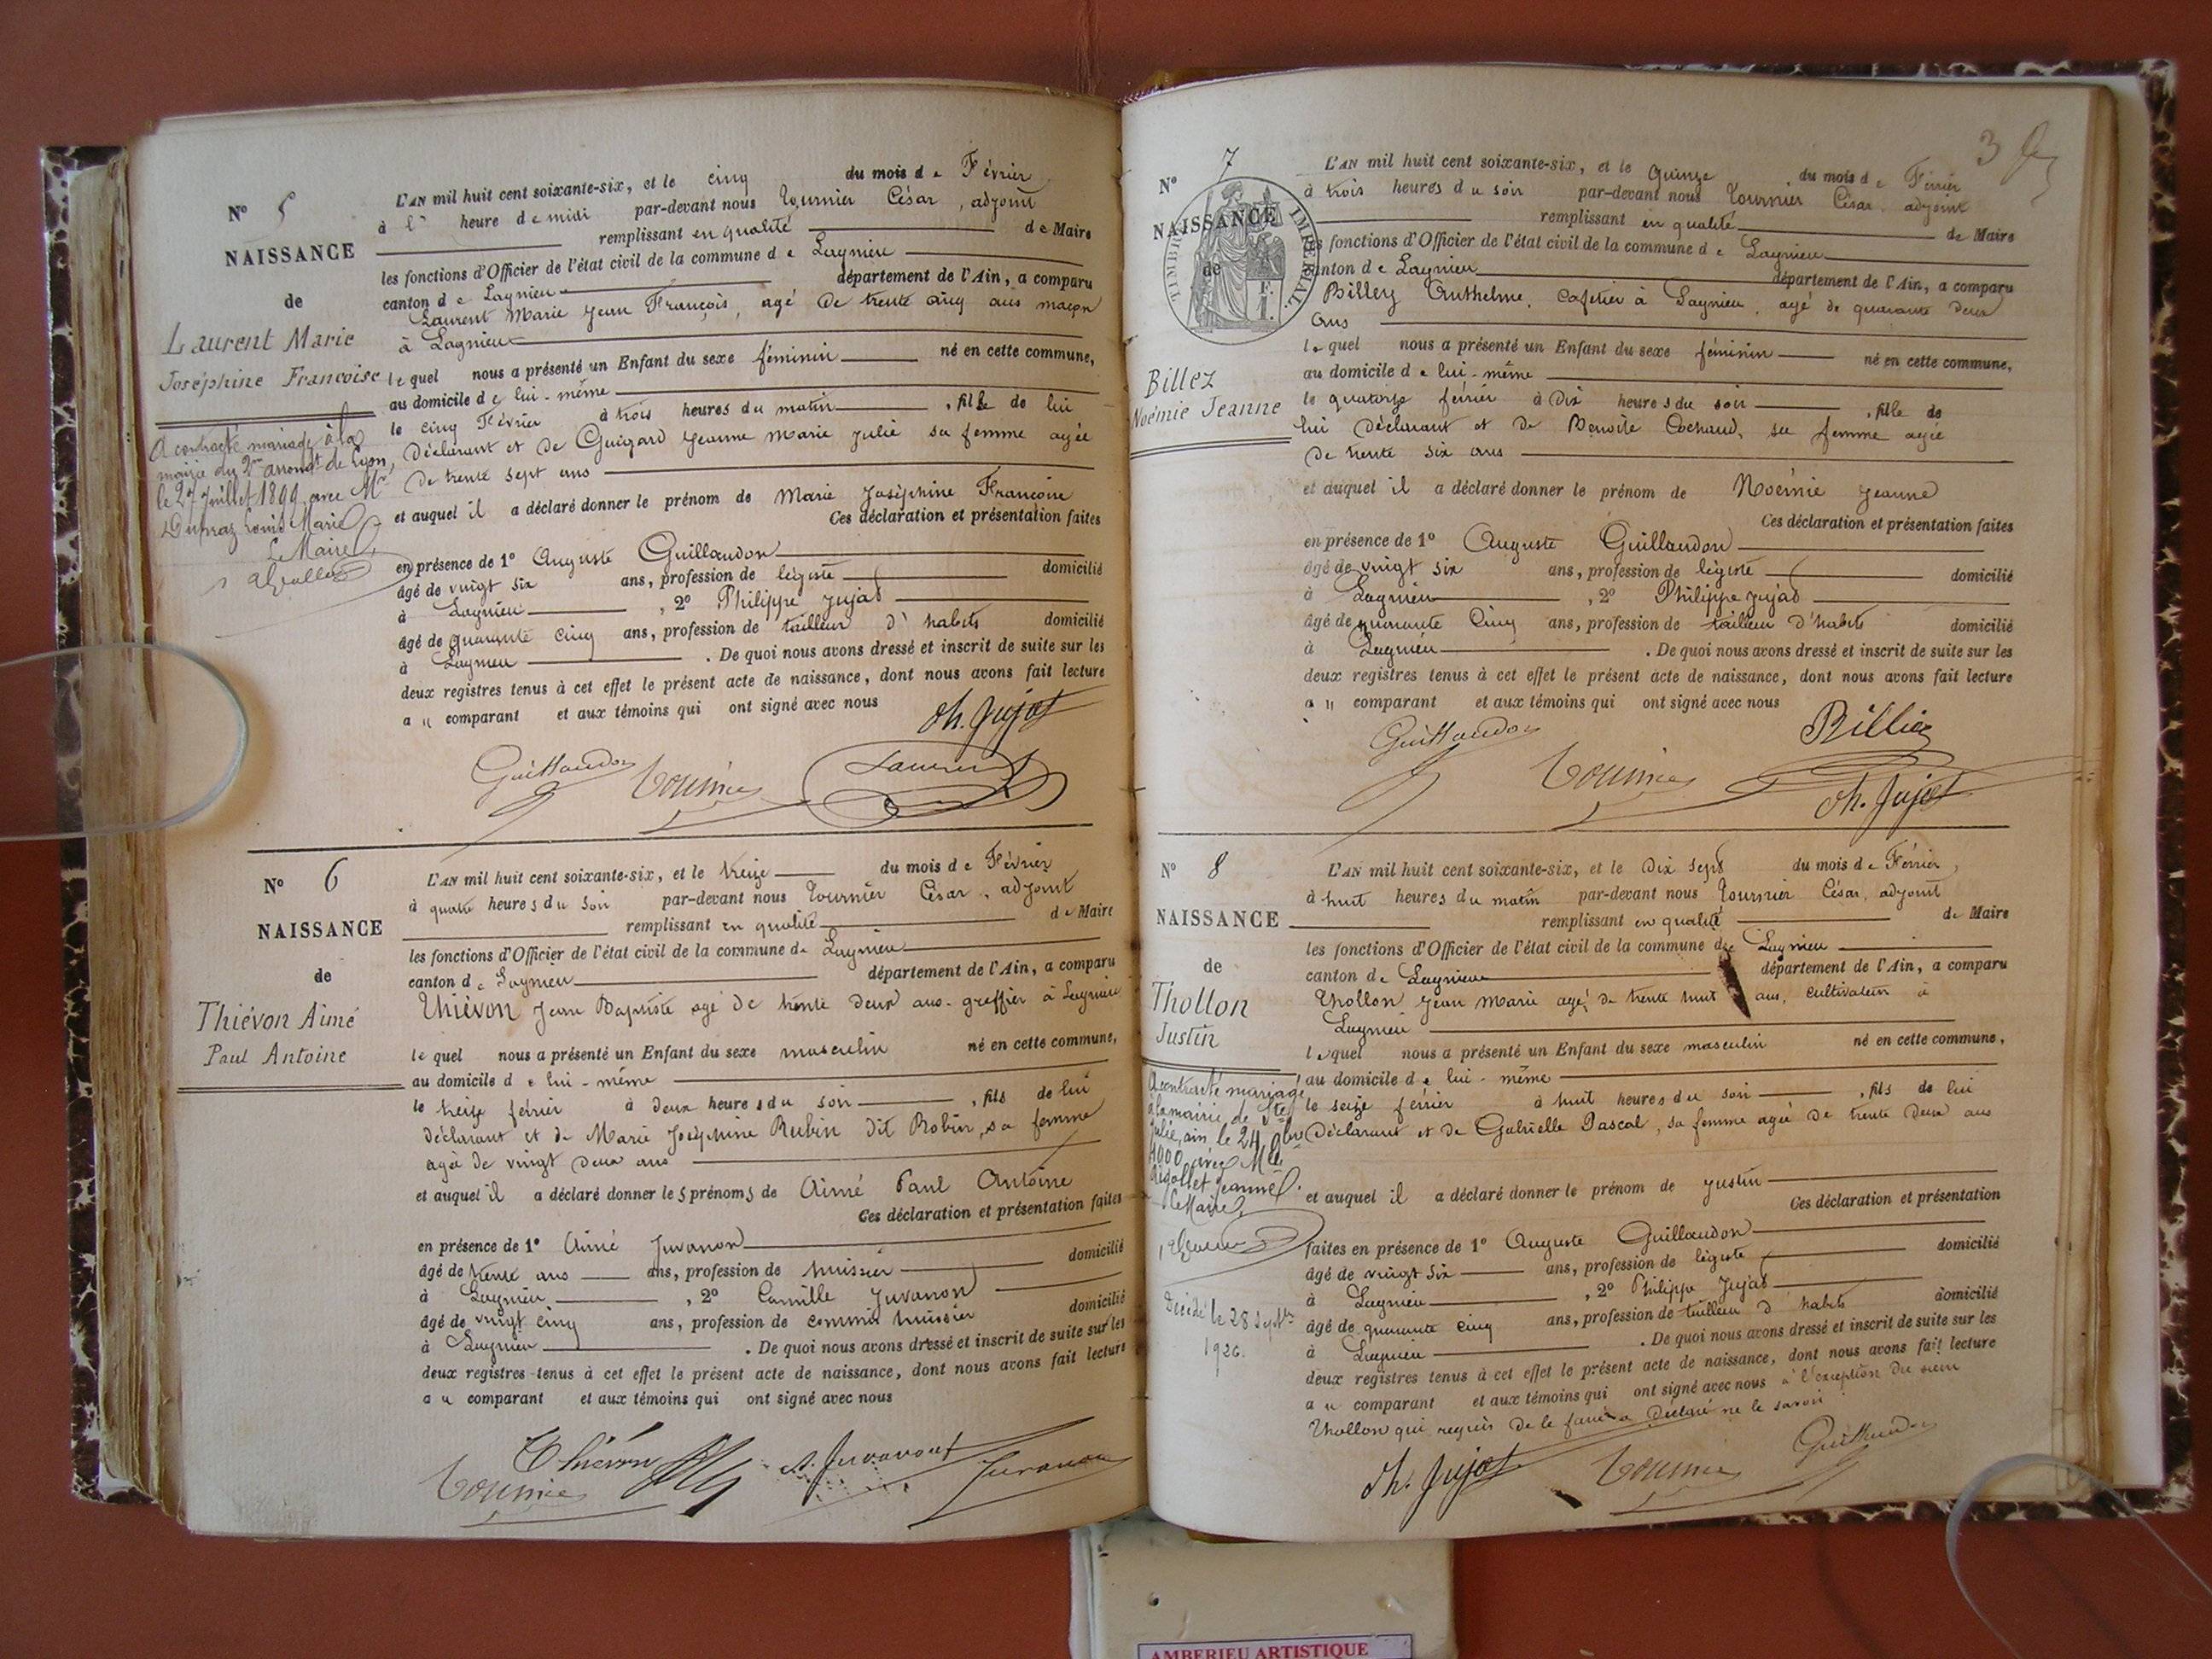 N° 5
NAISSANCE
de
Laurent Marie
Joséphine Françoise
A contracté mariage à la
mairie du 2me arrondt de Lyon,
le 27 Juillet 1899, avec Mr
Dupraz Louis Marie
Le Maire,
L'AN mil huit cent soixante-six, et le cinq du mois de Février
à heure de midi par-devant nous Tournier César, adjoint
remplissant en qualité de Maire
les fonctions d'Officier de l'état civil de la commune de Lagnieu
canton de Lagnieu département de l'Ain, a comparu
Laurent Marie Jean François, agé de trente cinq ans maçon
à Lagnieu
lequel nous a présenté un Enfant du sexe féminin né en cette commune,
au domicile de lui-même
le cinq Février à trois heures du matin, fille de lui
Déclarant et de Guigard Jeanne Marie Julie sa femme agée
De trente sept ans
et auquel il a déclaré donner le prénom de Marie Joséphine Françoise
Ces déclaration et présentation faites
en présence de 1° Auguste Guillaudon
âgé de vingt six ans, profession de légiste domicilié
à Lagnieu, 2° Philippe Jujat
âgé de quarante cinq ans, profession de tailleur d'habits domicilié
à Lagnieu. De quoi nous avons dressé et inscrit de suite sur les
deux registres tenus à cet effet le présent acte de naissance, dont nous avons fait lecture
au comparant et aux témoins qui ont signé avec nous
Ph. Jujat
Guillaudon Tournier Laurent
N° 6
NAISSANCE
de
Thiévon Aimé
Paul Antoine
L'AN mil huit cent soixante-six, et le treize du mois de Février
à quatre heures du soir par-devant nous Tournier César, adjoint
remplissant en qualité de Maire
les fonctions d'Officier de l'état civil de la commune de Lagnieu
canton de Lagnieu département de l'Ain, a comparu
Thiévon Jean Baptiste agé de trente deux ans greffier à Lagnieu
lequel nous a présenté un Enfant du sexe masculin né en cette commune,
au domicile de lui-même
le treize février à deux heures du soir, fils de lui
déclarant et de Marie Joséphine Rubin dit Robin, sa femme
agée de vingt deux ans
et auquel il a déclaré donner les prénoms de Aimé Paul Antoine
Ces déclaration et présentation faites
en présence de 1° Aimé Juvanon
âgé de trente ans ans, profession de huissier domicilié
à Lagnieu, 2° Camille Juvanon
âgé de vingt cinq ans, profession de commis huissier domicilié
à Lagnieu. De quoi nous avons dressé et inscrit de suite sur les
deux registres tenus à cet effet le présent acte de naissance, dont nous avons fait lecture
au comparant et aux témoins qui ont signé avec nous
Thiévon A. Juvanon Juvanon
Tournier
3
N° 7
NAISSANCE
de
TIMBRE IMPERIAL
1 F.
Billez
Noémie Jeanne
L'AN mil huit cent soixante-six, et le quinze du mois de Février
à trois heures du soir par-devant nous Tournier César adjoint
remplissant en qualité de Maire
les fonctions d'Officier de l'état civil de la commune de Lagnieu
canton de Lagnieu département de l'Ain, a comparu
Billez Anthelme, cafetier à Lagnieu, agé de quarante deux
ans
lequel nous a présenté un Enfant du sexe féminin né en cette commune,
au domicile de lui-même
le quatorze février à Dix heures du soir, fille de
lui Déclarant et de Benoîte Cochaud, sa femme agée
De trente six ans
et auquel il a déclaré donner le prénom de Noémie Jeanne
Ces déclaration et présentation faites
en présence de 1° Auguste Guillaudon
âgé de vingt six ans, profession de légiste domicilié
à Lagnieu, 2° Philippe Jujat
âgé de quarante cinq ans, profession de tailleur d'habits domicilié
à Lagnieu. De quoi nous avons dressé et inscrit de suite sur les
deux registres tenus à cet effet le présent acte de naissance, dont nous avons fait lecture
au comparant et aux témoins qui ont signé avec nous
Guillaudon Tournier Billiez
Ph. Jujat
N° 8
NAISSANCE
de
Thollon
Justin
A contracté mariage
à la mairie de Ste
Julie, ain, le 24
avec Mlle
Jeanne.
Le Maire,
Décédé le 28 Septbre
1926.
L'AN mil huit cent soixante-six, et le dix sept du mois de Février,
à huit heures du matin par-devant nous Tournier César, adjoint
remplissant en qualité de Maire
les fonctions d'Officier de l'état civil de la commune de Lagnieu
canton de Lagnieu département de l'Ain, a comparu
Thollon Jean Marie agé de trente huit ans, cultivateur à
Lagnieu
lequel nous a présenté un Enfant du sexe masculin né en cette commune,
au domicile de lui-même
le seize février à huit heures du soir, fils de lui
Déclarant et de Gabrielle Pascal, sa femme agée de trente deux ans
et auquel il a déclaré donner le prénom de Justin
Ces déclaration et présentation
faites en présence de 1° Auguste Guillaudon
âgé de vingt six ans, profession de légiste domicilié
à Lagnieu, 2° Philippe Jujat
âgé de quarante cinq ans, profession de tailleur d'habits domicilié
à Lagnieu. De quoi nous avons dressé et inscrit de suite sur les
deux registres tenus à cet effet le présent acte de naissance, dont nous avons fait lecture
au comparant et aux témoins qui ont signé avec nous à l'exception du sieur
Thollon qui requis de le faire a déclaré ne le savoir
Ph. Jujat Tournier Guillaudon
AMBERIEU ARTISTIQUE